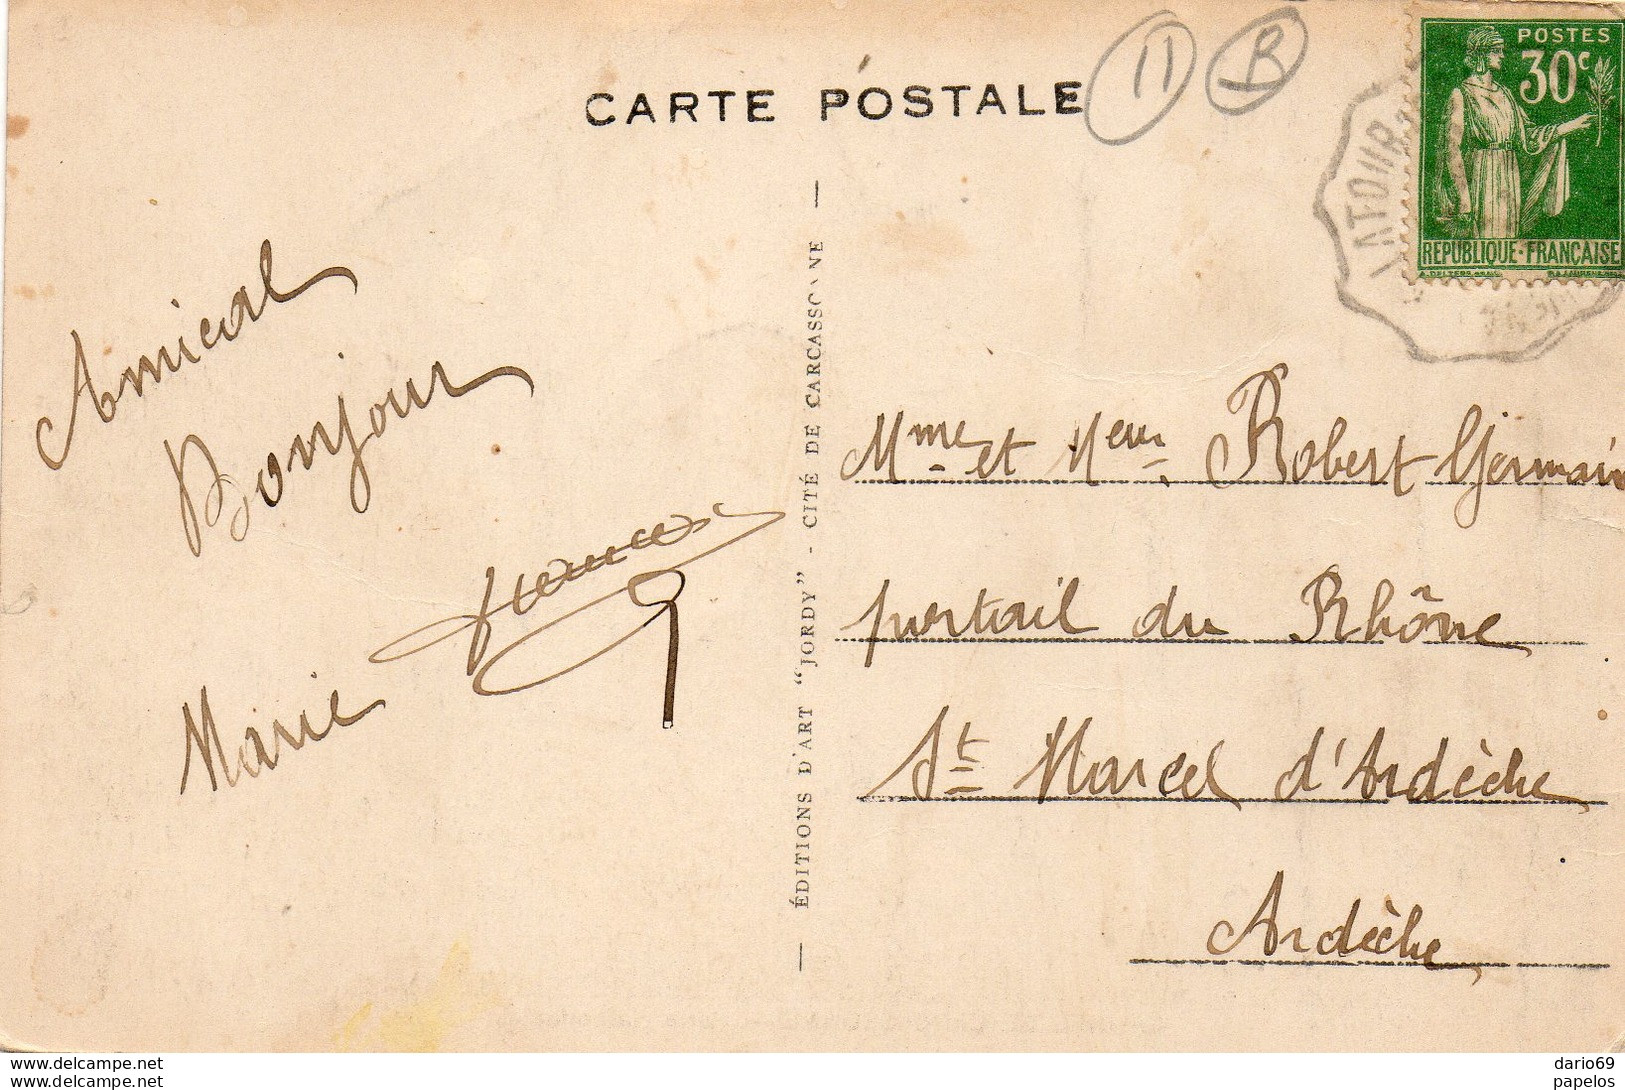 CARTE POSTALE
11
B
POSTES
30c
REPUBLIQUE-FRANÇAISE
LATOUR
Amical
Bonjour
Marie
— ÉDITIONS D'ART "JORDY" - CITÉ DE CARCASSONNE —
Mme et Meur Robert Germain
portail du Rhône
St Marcel d'Ardèche
Ardèche
www.delcampe.net
dario69
papelos